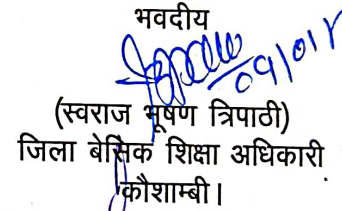 भवदीय
(स्वराज भूषण त्रिपाठी)
जिला बेसिक शिक्षा अधिकारी
कौशाम्बी।